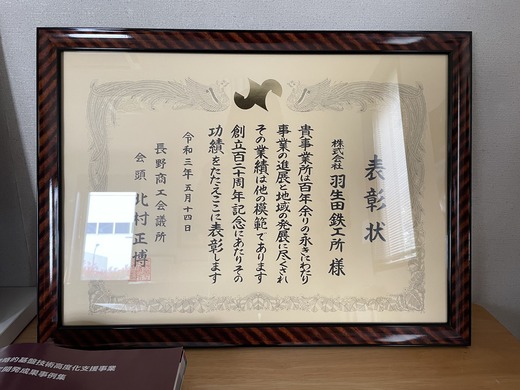 表彰状
株式会社 羽生田鉄工所 様
貴事業所は百年余りの永きにわたり
事業の進展と地域の発展に尽くされ
その業績は他の模範であります
創立百二十周年記念にあたりその
功績をたたえここに表彰します
令和三年五月十四日
長野商工会議所
会頭 北村正博
的基盤技術高度化支援事業
開発成果事例集